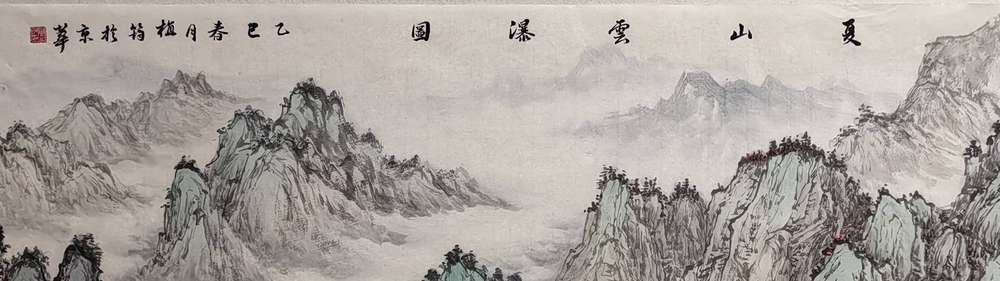 夏山雲瀑圖
乙巳春月植筠於京華